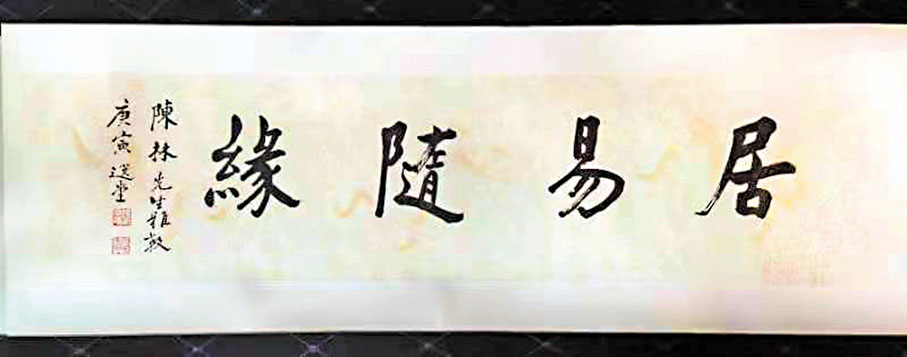 居易隨緣
陳林先生雅教
庚寅選堂